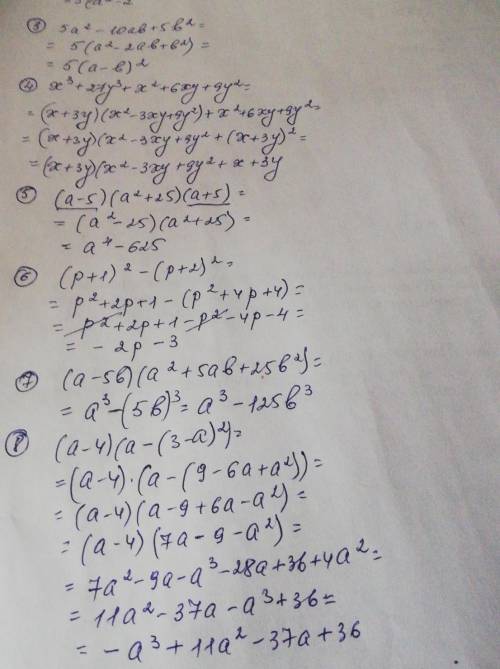 ③ 5a² - 10ab + 5b² =
= 5(a² - 2ab + b²) =
= 5(a - b)²
④ x³ + 27y³ + x² + 6xy + 9y² =
= (x + 3y)(x² - 3xy + 9y²) + x² + 6xy + 9y² =
= (x + 3y)(x² - 3xy + 9y² + (x + 3y)² =
= (x + 3y)(x² - 3xy + 9y² + x + 3y
⑤ (a - 5)(a² + 25)(a + 5) =
= (a² - 25)(a² + 25) =
= a⁴ - 625
⑥ (p + 1)² - (p + 2)² =
= p² + 2p + 1 - (p² + 4p + 4) =
= p² + 2p + 1 - p² - 4p - 4 =
= - 2p - 3
⑦ (a - 5b)(a² + 5ab + 25b²) =
= a³ - (5b)³ = a³ - 125b³
⑧ (a - 4)(a - (3 - a)²) =
= (a - 4) · (a - (9 - 6a + a²)) =
= (a - 4)(a - 9 + 6a - a²) =
= (a - 4)(7a - 9 - a²) =
= 7a² - 9a - a³ - 28a + 36 + 4a² =
= 11a² - 37a - a³ + 36 =
= - a³ + 11a² - 37a + 36